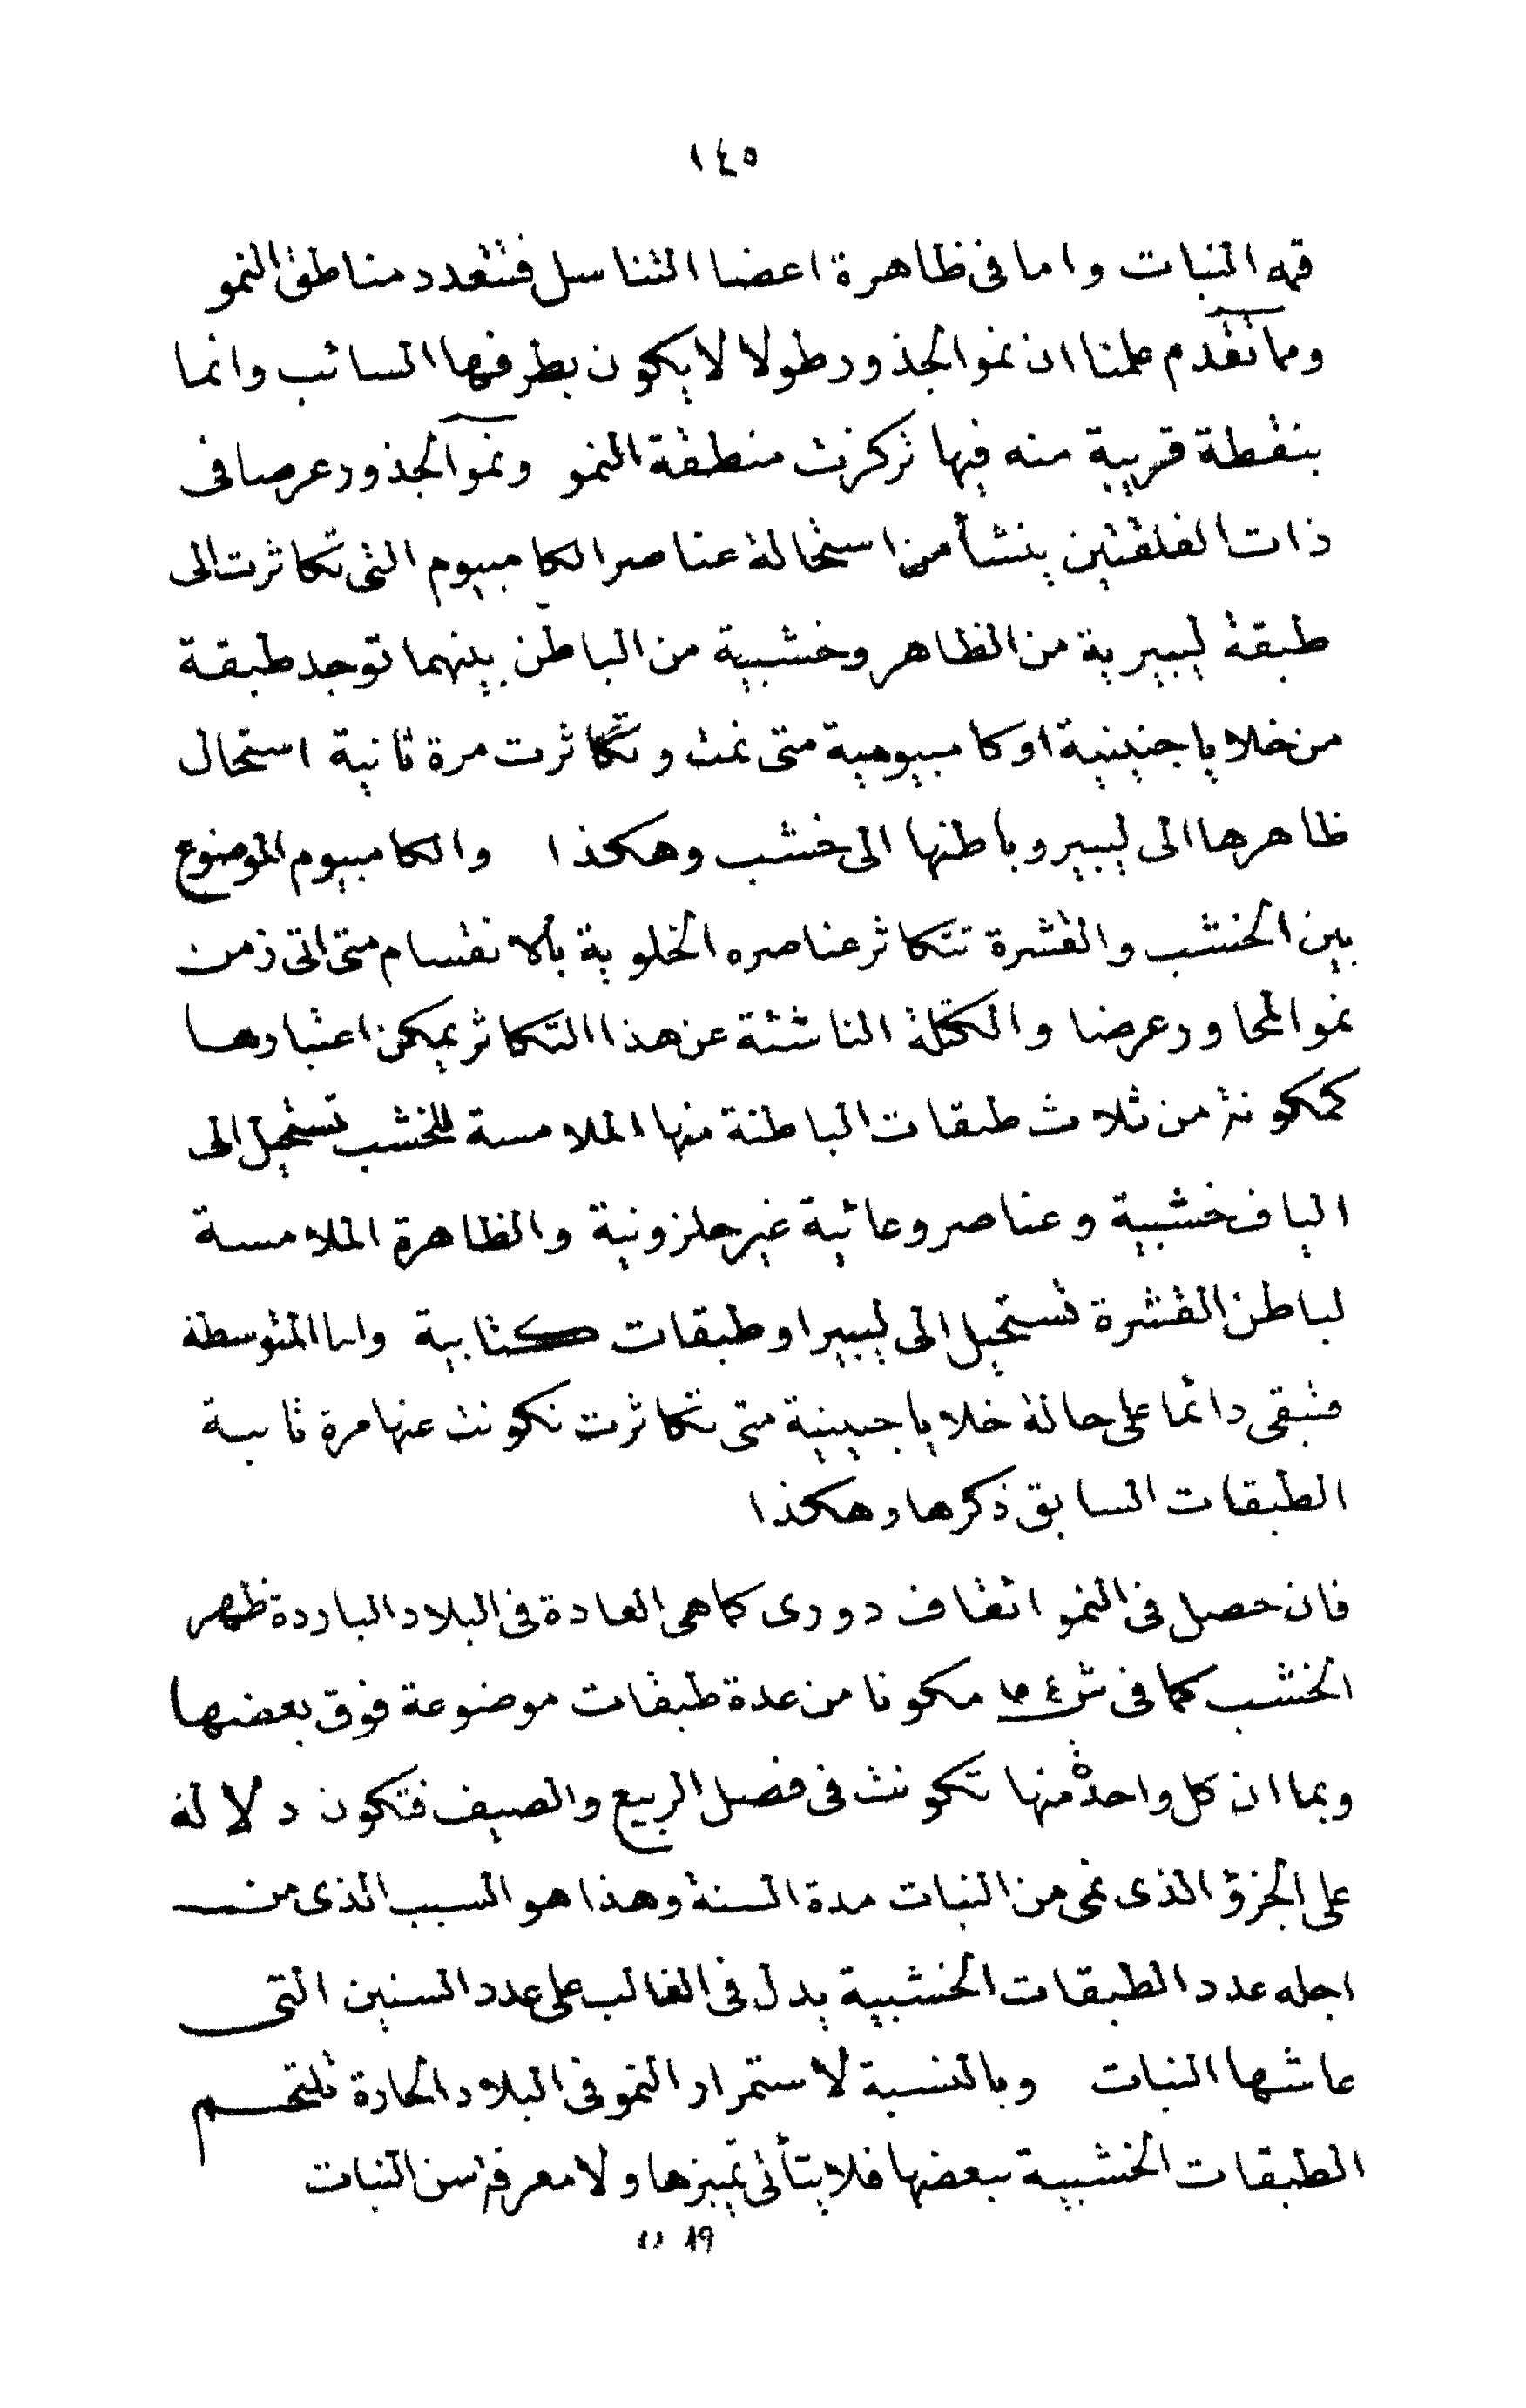 ١٤٥
قمه النبات واما فى ظاهرة اعضا التناسل فتتعدد مناطق النمو
ومما تقدم علمنا ان نمو الجذور طولا لا يكون بطرفها السائب وانما
بنقطة قريبة منه فيها تركزت منطقة النمو ونمو الجذور عرضا فى
ذات الفلقتين ينشأ من استحالة عناصر الكامبيوم التى تكاثرت الى
طبقة ليبيرية من الظاهر وخشبية من الباطن بينهما توجد طبقة
من خلايا جنينية او كامبيومية متى نمت وتكاثرت مرة ثانية استحال
ظاهرها الى ليبير وباطنها الى خشب وهكذا والكامبيوم الموضوع
بين الخشب والقشرة تتكاثر عناصره الخلوية بالانقسام متى اتى زمن
نمو المحاور عرضا والكتلة الناشئة عن هذا التكاثر يمكن اعتبارها
كمكونة من ثلاث طبقات الباطنة منها الملامسة للخشب تستحيل الى
الياف خشبية وعناصر وعائية غير حلزونية والظاهرة الملامسة
لباطن القشرة تستحيل الى ليبير او طبقات كتابية واما المتوسطة
فتبقى دائما على حالة خلايا جنينية متى تكاثرت تكونت عنها مرة ثانية
الطبقات السابق ذكرها وهكذا
فان حصل فى النمو اتقاف دورى كما هى العادة فى البلاد الباردة ظهر
الخشب كما فى ش مكونا من عدة طبقات موضوعة فوق بعضها
وبما ان كل واحدة منها تكونت فى فصل الربيع والصيف فتكون دلالة
على الجزؤ الذى نمى من النبات مدة السنة وهذا هو السبب الذى من
اجله عدد الطبقات الخشبية يدل فى الغالب على عدد السنين التى
عاشها النبات وبالنسبة لاستمرار النمو فى البلاد الحارة تلتحم
الطبقات الخشبية ببعضها فلا يتأتى تمييزها ولا معرفة سن النبات